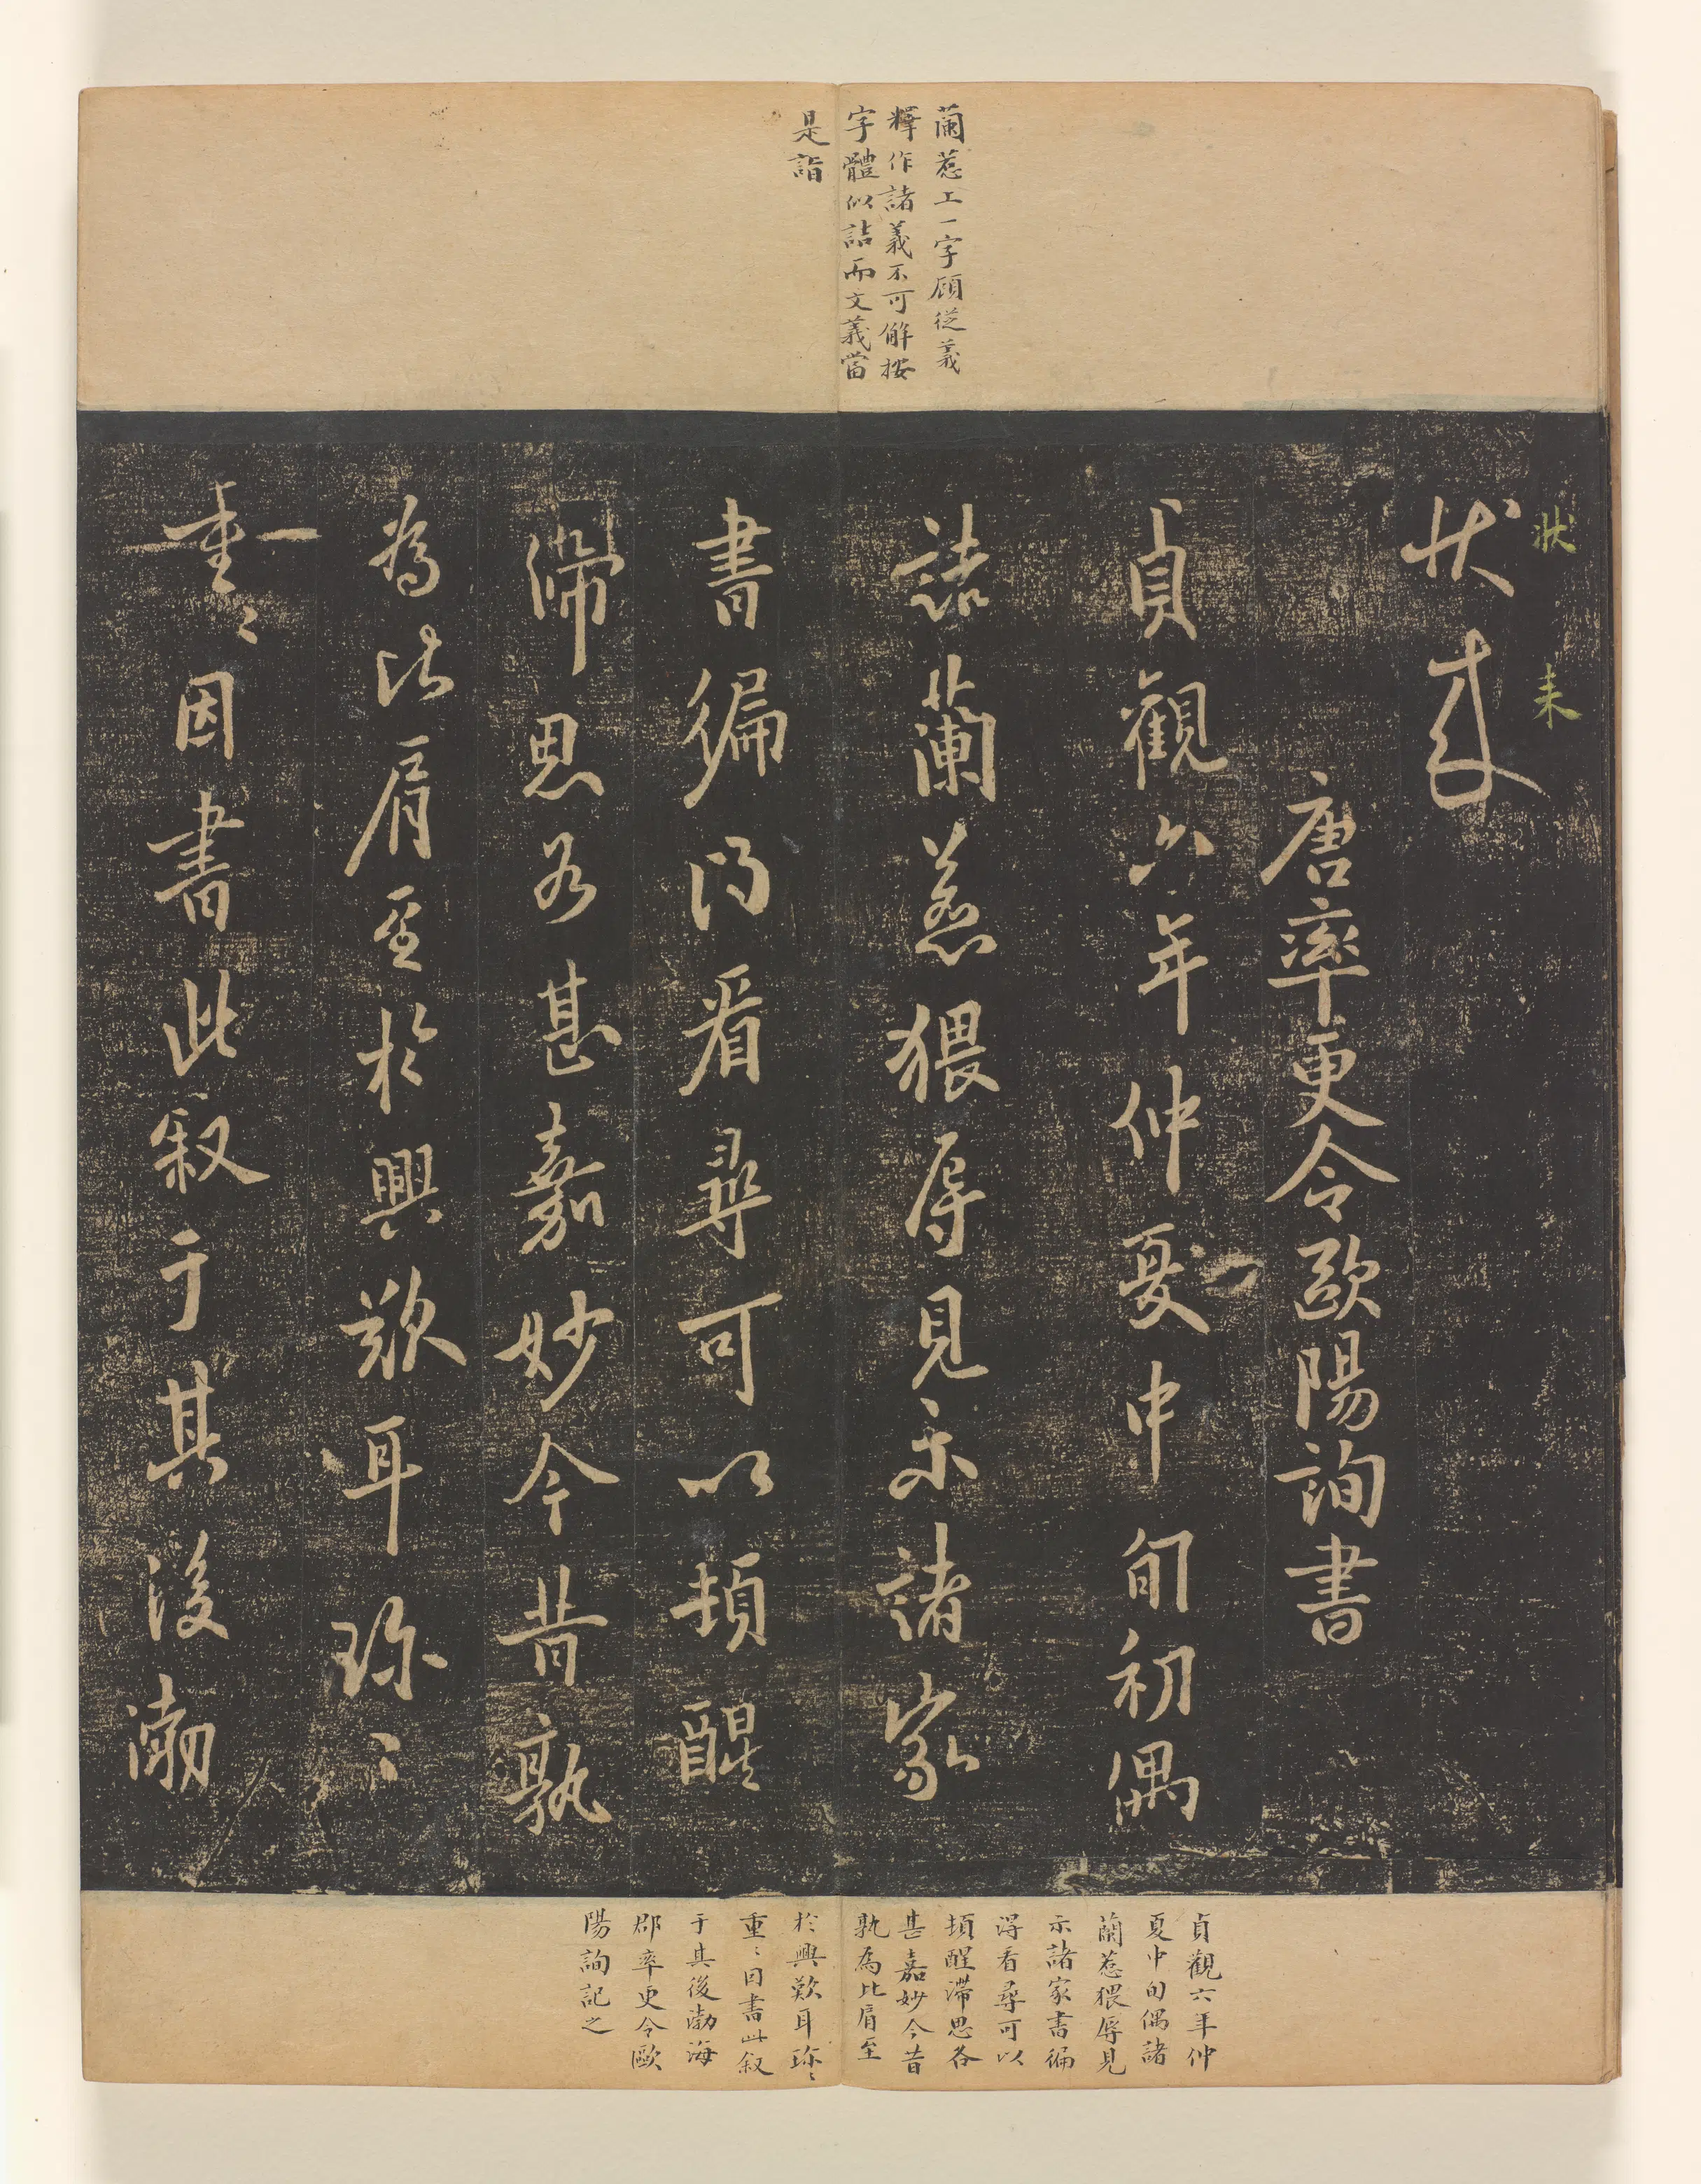 蘭惹上一字顧從義
釋作諸義不可解按
字體似詰而文義當
是詣
狀來
狀未
唐率更令歐陽詢書
貞觀六年仲夏中旬初偶
詣蘭惹猥辱見示諸家
書徧得看尋可以頓醒
滯思各甚嘉妙今昔孰
為比肩至於興歎耳珎〻
重〻因書此叙于其後渤
貞觀六年仲
夏中旬偶諸
蘭惹猥辱見
示諸家書徧
得看尋可以
頓醒滯思各
甚嘉妙今昔
孰為比肩至
於興歎耳珎〻
重〻因書此叙
于其後渤海
郡率更令歐
陽詢記之